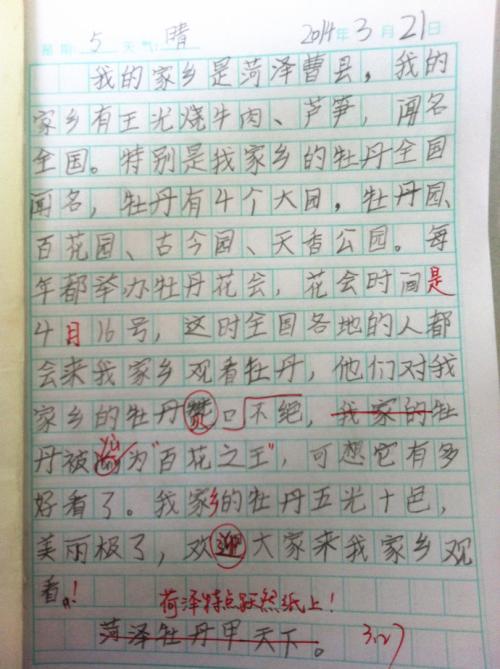 星期 5 天气 晴 2014年3月21日
我的家乡是菏泽曹县，我的
家乡有王光烧牛肉、芦笋，闻名
全国。特别是我家乡的牡丹全国
闻名，牡丹有4个大园，牡丹园、
百花园、古今园、天香公园。每
年都举办牡丹花会，花会时间是
4月16号，这时全国各地的人都
会来我家乡观看牡丹，他们对我
家乡的牡丹赞口不绝，我家的牡
丹被为"百花之王"，可想它有多
好看了。我家乡的牡丹五光十色，
美丽极了，欢迎大家来我家乡观
看。！
菏泽特点跃然纸上！
菏泽牡丹甲天下。 3.27